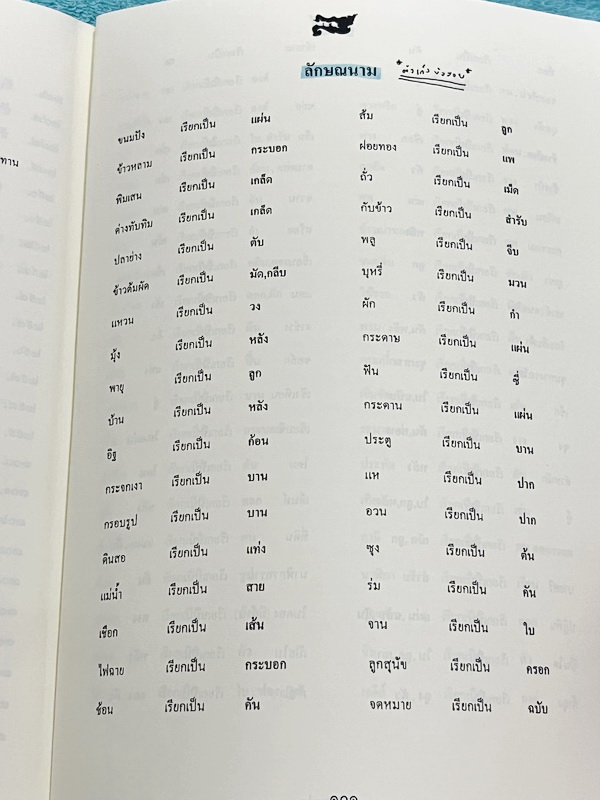 ลักษณนาม
ขนมปัง เรียกเป็น แผ่น
ข้าวหลาม เรียกเป็น กระบอก
พิมเสน เรียกเป็น เกล็ด
ด่างทับทิม เรียกเป็น เกล็ด
ปลาย่าง เรียกเป็น ตับ
ข้าวต้มผัด เรียกเป็น มัด,กลีบ
แหวน เรียกเป็น วง
มุ้ง เรียกเป็น หลัง
พายุ เรียกเป็น ลูก
บ้าน เรียกเป็น หลัง
อิฐ เรียกเป็น ก้อน
กระจกเงา เรียกเป็น บาน
กรอบรูป เรียกเป็น บาน
ดินสอ เรียกเป็น แท่ง
แม่น้ำ เรียกเป็น สาย
เชือก เรียกเป็น เส้น
ไฟฉาย เรียกเป็น กระบอก
ช้อน เรียกเป็น คัน
ส้ม เรียกเป็น ลูก
ฝอยทอง เรียกเป็น แพ
ถั่ว เรียกเป็น เม็ด
กับข้าว เรียกเป็น สำรับ
พลู เรียกเป็น จีบ
บุหรี่ เรียกเป็น มวน
ผัก เรียกเป็น กำ
กระดาษ เรียกเป็น แผ่น
ฟัน เรียกเป็น ซี่
กระดาน เรียกเป็น แผ่น
ประตู เรียกเป็น บาน
แห เรียกเป็น ปาก
อวน เรียกเป็น ปาก
ซุง เรียกเป็น ต้น
ร่ม เรียกเป็น คัน
จาน เรียกเป็น ใบ
ลูกสุนัข เรียกเป็น ครอก
จดหมาย เรียกเป็น ฉบับ